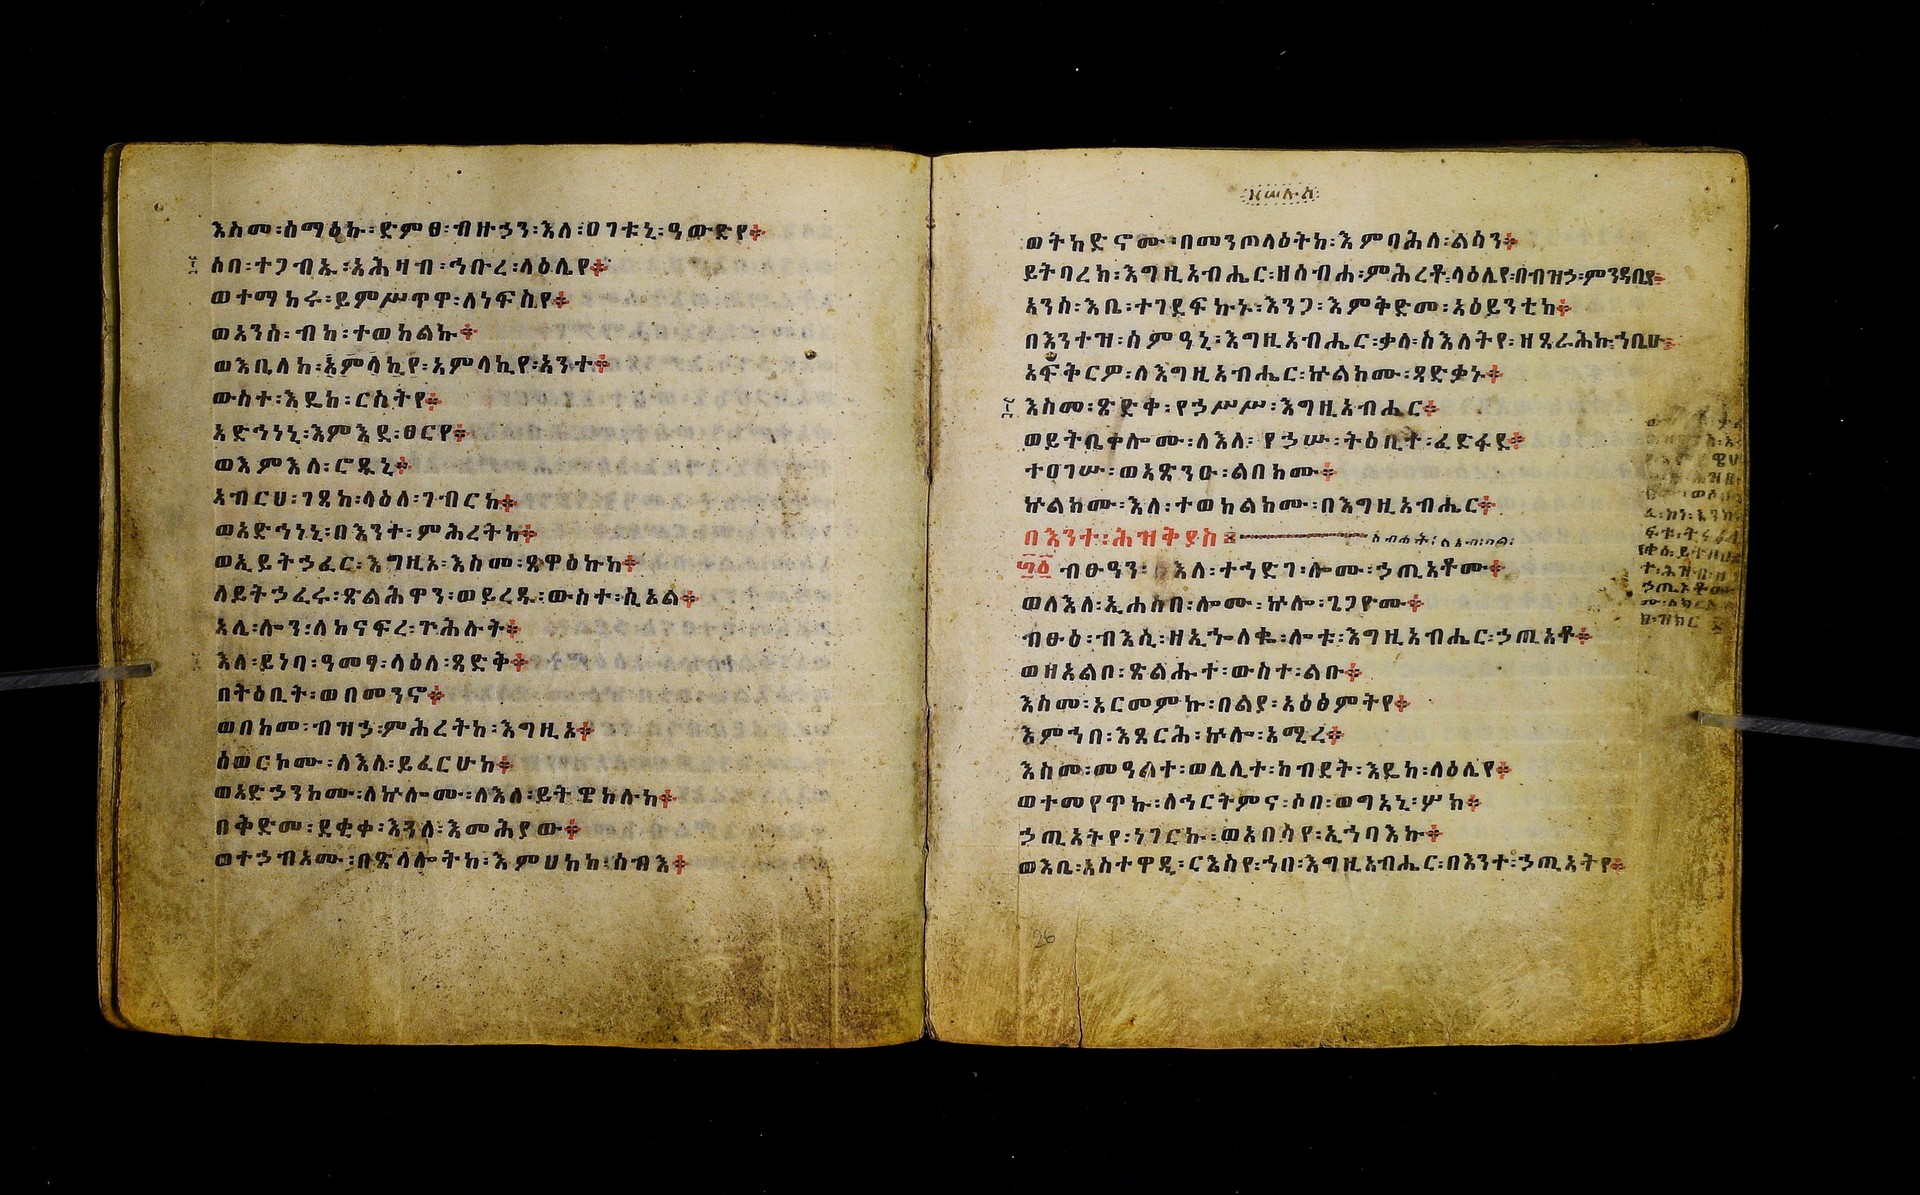 እስመ፡ሰማዕኩ፡ድምፀ፡ብዙኃን፡እለ፡ዐገቱኒ፡ዓውድየ፨
፲ ሶበ፡ተጋብኡ፡አሕዛብ፡ኅቡረ፡ላዕሌየ፨
ወተማከሩ፡ይምሥጥዋ፡ለነፍስየ፨
ወአንሰ፡ብከ፡ተወከልኩ፨
ወእቤለከ፡አምላኪየ፡አምላኪየ፡አንተ፨
ውስተ፡እዴከ፡ርስትየ፨
አድኅነኒ፡እምእደ፡ፀርየ፨
ወእምእለ፡ሮዱኒ፨
አብርህ፡ገጸከ፡ላዕለ፡ገብርከ፨
ወአድኅነኒ፡በእንተ፡ምሕረትከ፨
ወኢይትኃፈር፡እግዚአ፡እስመ፡ጸዋዕኩከ፨
ለይትኃፈሩ፡ጽልሕዋን፡ወይረዱ፡ውስተ፡ሲኦል፨
አሌ፡ሎን፡ለከናፍረ፡ጕሕሉት፨
እለ፡ይነባ፡ዓመፃ፡ላዕለ፡ጻድቅ፨
በትዕቢት፡ወበመንኖ፨
ወበከመ፡ብዝኃ፡ምሕረትከ፡እግዚአ፨
ሰወርኮሙ፡ለእለ፡ይፈርሁከ፨
ወአድኃንኮሙ፡ለኵሎሙ፡ለእለ፡ይትዌከሉከ፨
በቅድመ፡ደቂቀ፡እጓለ፡እመሕያው፨
ወተኃብኦሙ፡በጽላሎትከ፡እምሀከከ፡ሰብእ፨
ወትከድኖሙ፡በመንጦላዕትከ፡እምባሕለ፡ልሳን፨
ይትባረክ፡እግዚአብሔር፡ዘሰብሐ፡ምሕረቶ፡ላዕሌየ፡በብዝኃ፡ምንዳቤየ፨
አንሰ፡እቤ፡ተገደፍኩኑ፡እንጋ፡እምቅድመ፡አዕይንቲከ፨
በእንተዝ፡ሰምዓኒ፡እግዚአብሔር፡ቃለ፡ስእለትየ፡ዘጸራሕኩ፡ኀቤሁ፨
አፍቅርዎ፡ለእግዚአብሔር፡ኵልክሙ፡ጻድቃኑ፨
፲ እስመ፡ጽድቀ፡የኃሥሥ፡እግዚአብሔር፨
ወይትቤቀሎሙ፡ለእለ፡የኃሡ፡ትዕቢተ፡ፈድፋደ፨
ተዐገሡ፡ወአጽንዑ፡ልበክሙ፨
ኵልክሙ፡እለ፡ተወከልክሙ፡በእግዚአብሔር፨
በእንተ፡ሕዝቅያስ
፴፩ ብፁዓን፡እለ፡ተኀድገ፡ሎሙ፡ኃጢአቶሙ፨
ወለእለ፡ኢሐሰበ፡ሎሙ፡ኵሎ፡ጌጋዮሙ፨
ብፁዕ፡ብእሲ፡ዘኢኍለቈ፡ሎቱ፡እግዚአብሔር፡ኃጢአቶ፨
ወዘአልቦ፡ጽልሑተ፡ውስተ፡ልቡ፨
እስመ፡አርመምኩ፡በልያ፡አዕፅምትየ፨
እምኀበ፡እጸርሕ፡ኵሎ፡አሚረ፨
እስመ፡መዓልተ፡ወሌሊተ፡ከብደት፡እዴከ፡ላዕሌየ፨
ወተመየጥኩ፡ለኅርትምና፡ሶበ፡ወግአኒ፡ሦክ፨
ኃጢአትየ፡ነገርኩ፡ወአበሳየ፡ኢኀባእኩ፨
ወእቤ፡አስተዋዲ፡ርእስየ፡ኀበ፡እግዚአብሔር፡በእንተ፡ኃጢአትየ፨
26